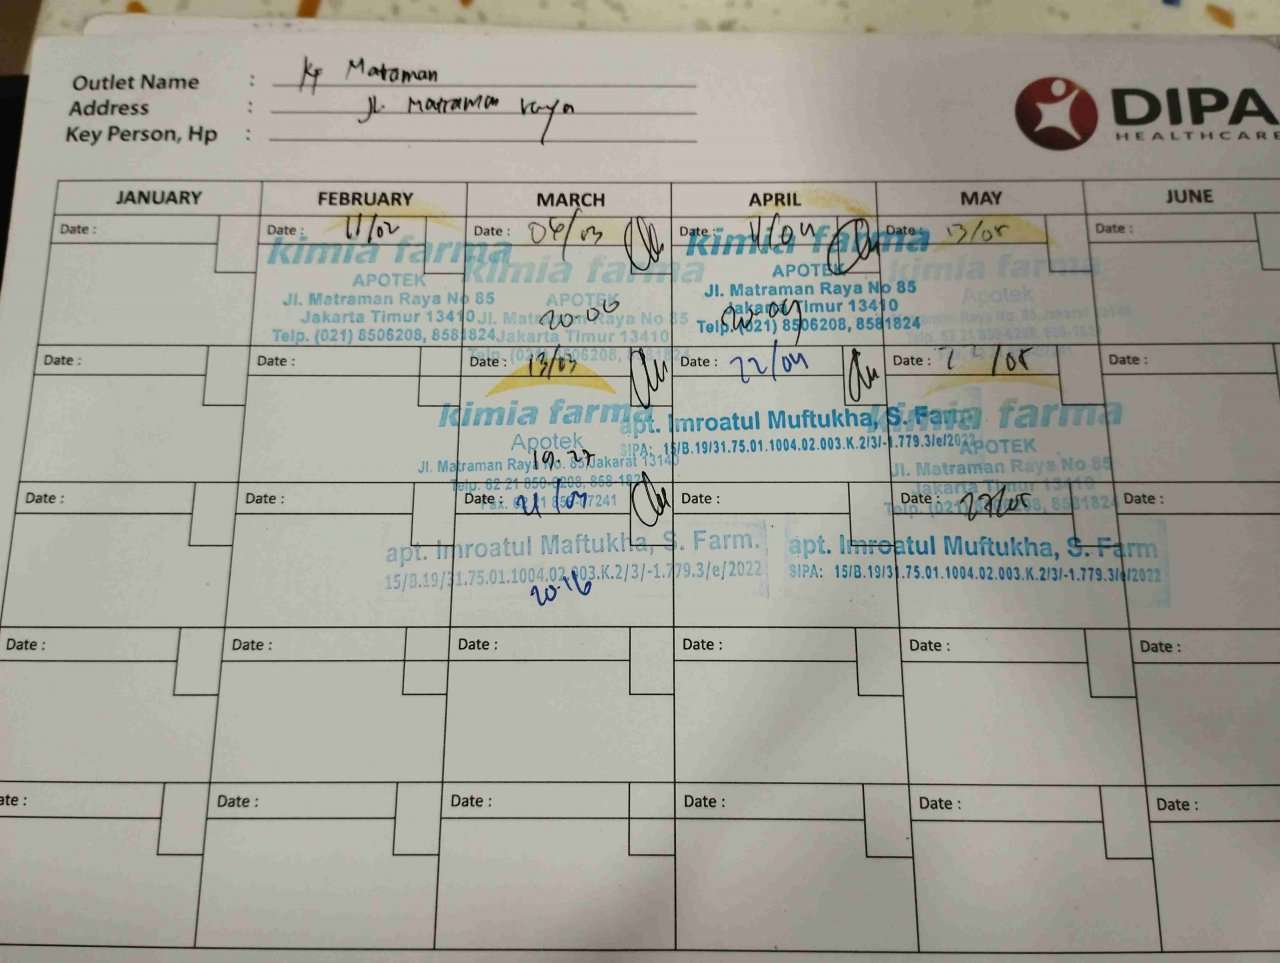 Outlet Name : KF Matraman
Address : Jl. Matraman raya
Key Person, Hp :
DIPA
HEALTHCARE
JANUARY FEBRUARY MARCH APRIL MAY JUNE
Date : Date : 11/02 Date : 06/03 Date : 11/04 Date : 13/05 Date :
kimia farma
APOTEK
Jl. Matraman Raya No 85
Jakarta Timur 13410
Telp. (021) 8506208, 8581824
kimia farma
APOTEK
Jl. Matraman Raya No 85
Jakarta Timur 13410
20-06
kimia farma
APOTEK
Jl. Matraman Raya No 85
Jakarta Timur 13410
Telp. (021) 8506208, 8581824
kimia farma
Apotek
Date : Date : Date : 13/03 Date : 22/04 Date : /05 Date :
kimia farma
Apotek
Jl. Matraman Raya No. 85 Jakarat 13140
19.27
apt. Imroatul Muftukha, S. Farm
SIPA: 15/B.19/31.75.01.1004.02.003.K.2/3/-1.779.3/e/2022
kimia farma
APOTEK
Jl. Matraman Raya No 85
Jakarta Timur 13410
Telp. (021) 8506208, 8581824
Date : Date : Date : 21/03 Date : Date : 27/05 Date :
apt. Imroatul Maftukha, S. Farm.
15/B.19/31.75.01.1004.02.003.K.2/3/-1.779.3/e/2022
20.16
apt. Imroatul Muftukha, S. Farm
SIPA: 15/B.19/31.75.01.1004.02.003.K.2/3/-1.779.3/e/2022
Date : Date : Date : Date : Date : Date :
ate : Date : Date : Date : Date : Date :